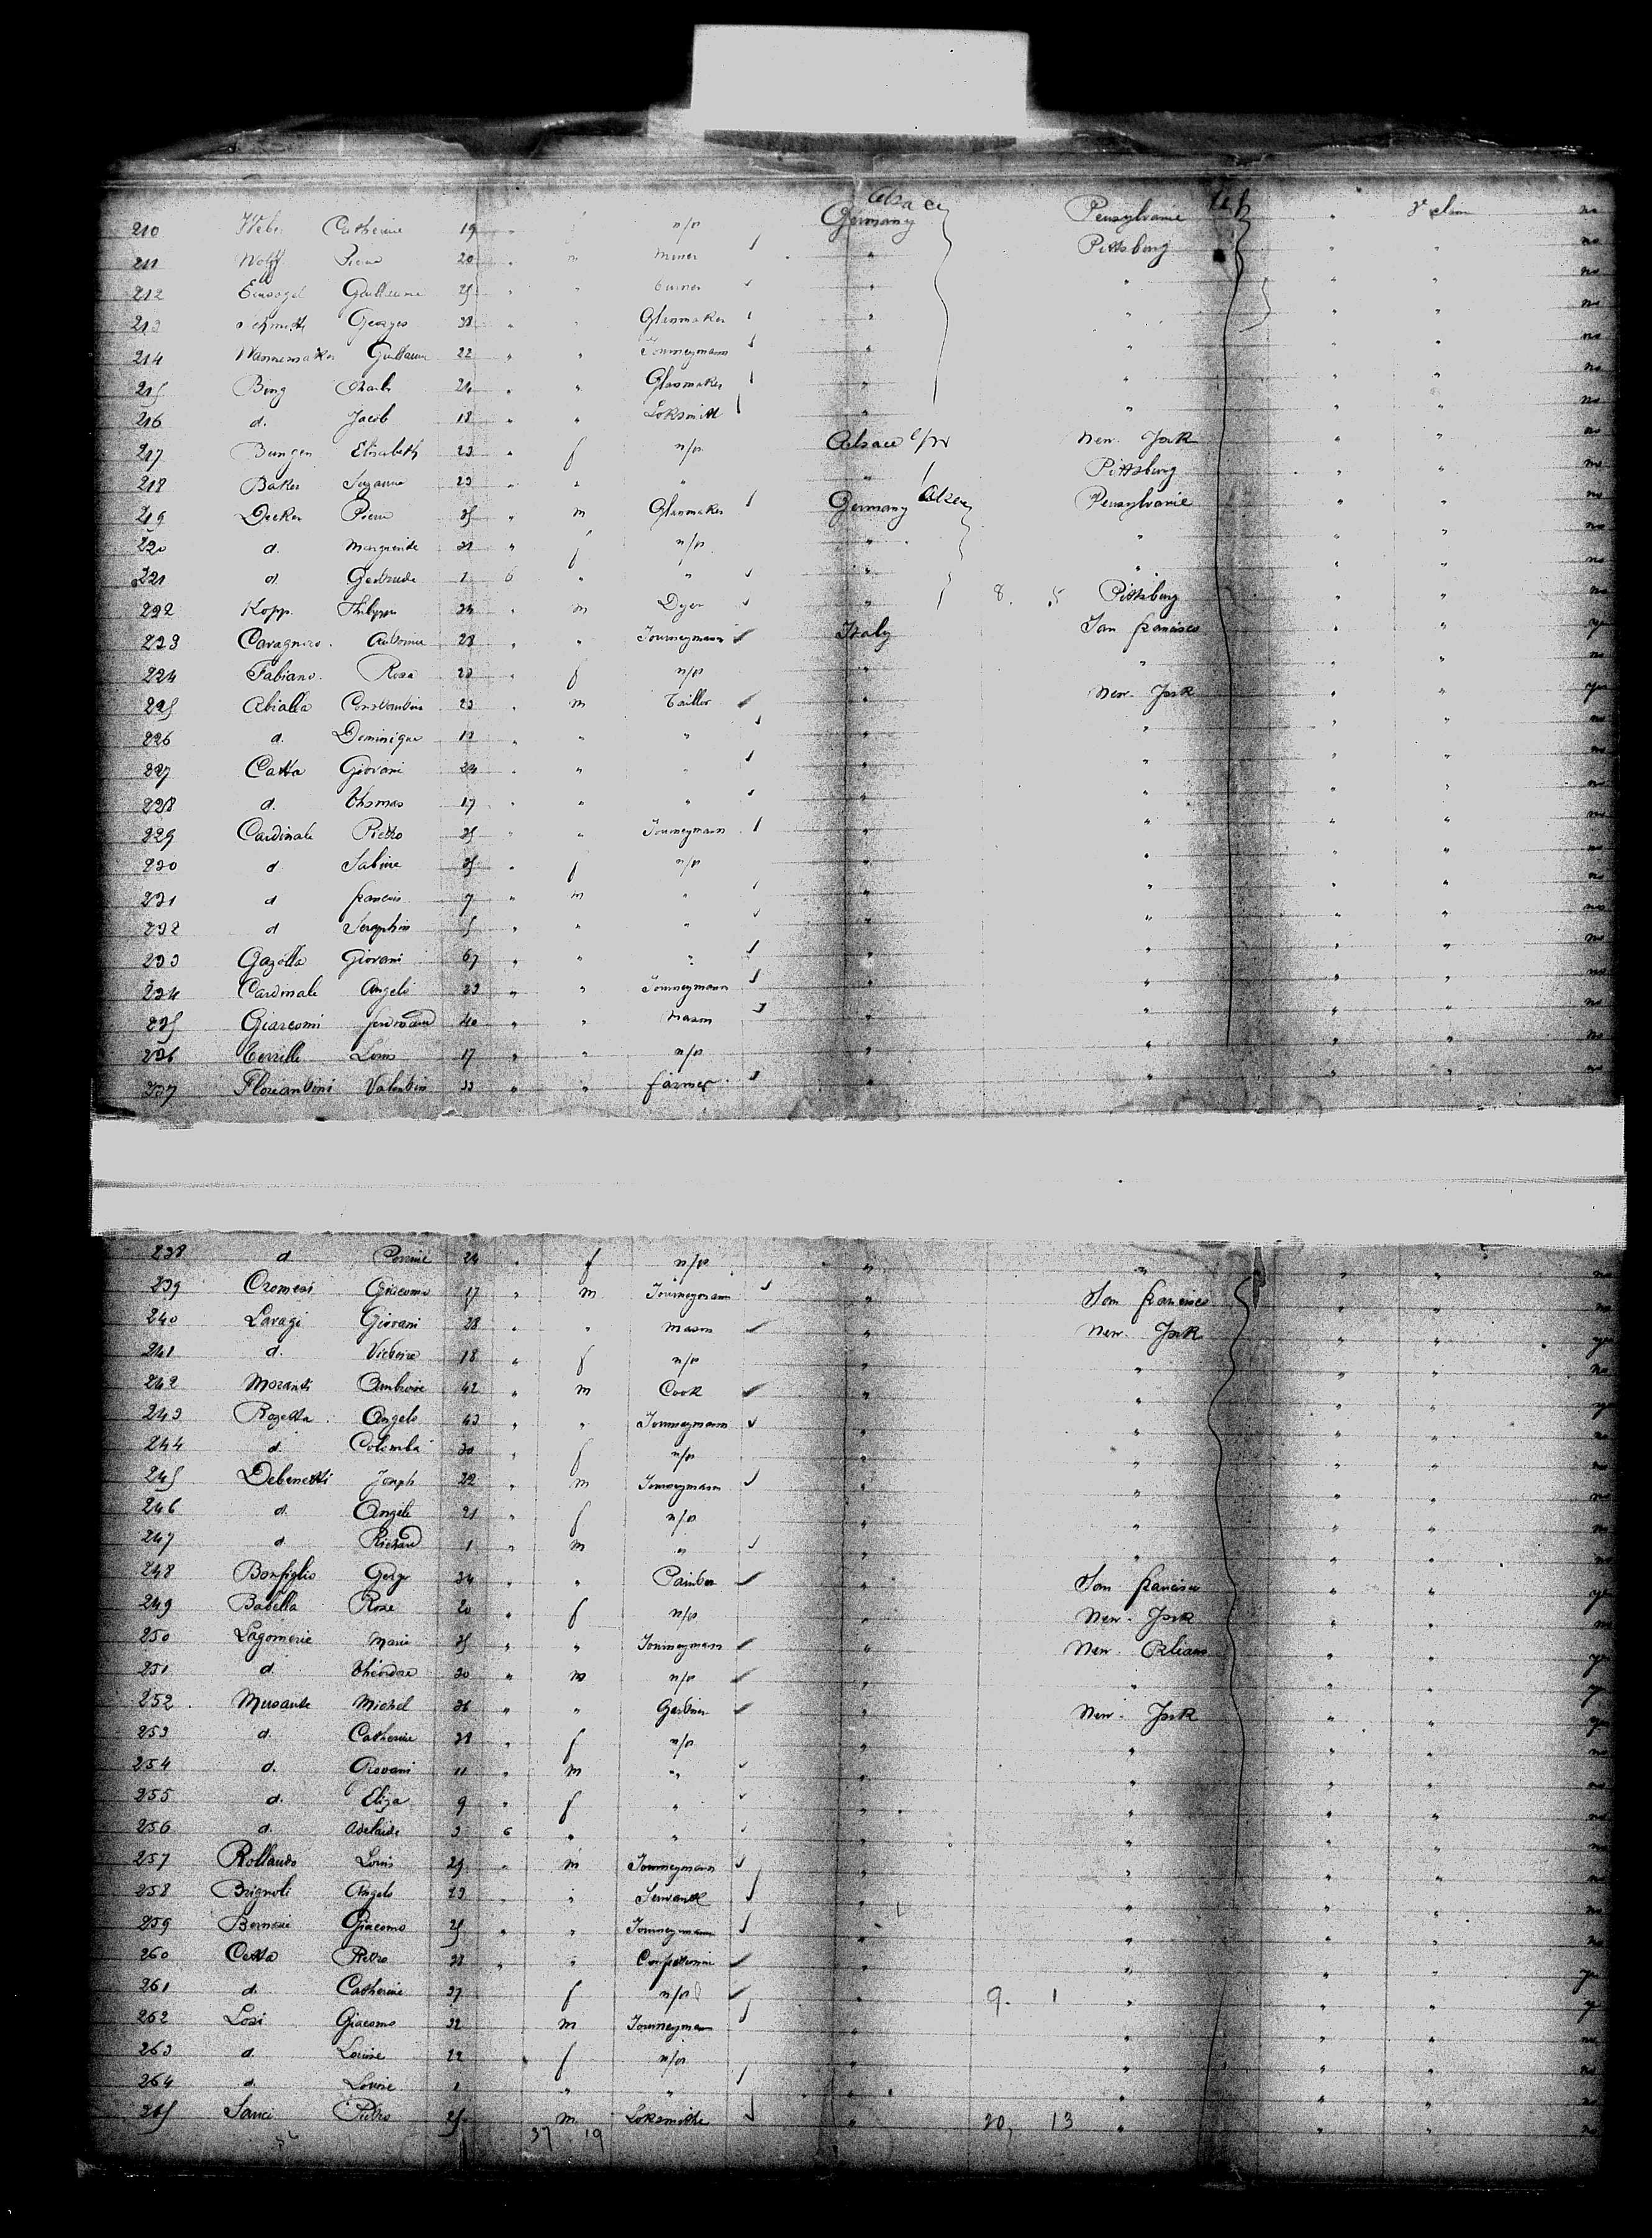 Alsace
210 Weber Catherine 19 " f n/p Germany Pensylvanie " 3d class no
211 Wolff Pierre 20 " m miner " Pittsburg " " no
212 Guillaume 25 " " " " " " no
213 Schmith Georges 38 " " Glasmaker " " " " no
214 Wannemaker Guillaume 22 " " Journeymann " " " " no
215 Bung Charle 24 " " Glasmaker " " " " no
216 d. Jacob 18 " " Loksmith " " " " no
217 Bungen Elisabeth 23 " f n/p Alsace New-York " " no
218 Baker Suzanne 23 " " " " Pittsburg " " no
219 Decker Pierre 35 " m Glasmaker Germany Alsace Pensylvanie " " no
220 d. Marguerite 31 " f n/p " " " " no
221 d. Gertrude 1 6 " " " " " " no
222 Kopp Philippe 24 " m Dyer " 8. 5 Pittsburg " " no
223 Antoine 28 " " Journeymann Italy San francisco " " yes
224 Fabiano Rosa 20 " f n/p " " " " no
225 Abialla Constantin 23 " m Taillor " New-York " " yes
226 d. Dominique 12 " " " " " " " no
227 Catta Giovani 24 " " " " " " " no
228 d. Thomas 17 " " " " " " " no
229 Cardinale Pietro 35 " " Journeymann " " " " no
230 d Sabine 35 " f n/p " " " " no
231 d francois 7 " m " " " " " no
232 d Seraphin 5 " " " " " " " no
233 Gazolla Giovani 67 " " " " " " " no
234 Cardinale Angelo 23 " " Journeymann " " " " no
235 Giacomi ferdinand 40 " " Mason " " " " no
236 Louis 17 " " n/p " " " " no
237 Valentin 33 " " farmer " " " " no
238 d 24 " f n/p " " " " no
239 Giacomo 17 " m Journeymann " San francisco " " no
240 Lavagi Giovani 28 " " Mason " New-York " " yes
241 d. Victoire 18 " f n/p " " " " no
242 Morandi Ambroise 42 " m Cook " " " " yes
243 Rozetta Angelo 43 " " Journeymann " " " " no
244 d. Colomba 30 " f n/p " " " " no
245 Debenetti Joseph 22 " m Journeymann " " " " no
246 d. Angele 21 " f n/p " " " " no
247 d Richard 1 " m " " " " " no
248 Bonfiglio 34 " " Painter " San francisco " " yes
249 Babella Rose 20 " f n/p " New-York " " no
250 Marie 35 " " Journeymann " New Orleans " " yes
251 d. Théodore 30 " m n/p " " " " yes
252 Musante Michel 36 " " Gardiner " New-York " " yes
253 d. Catherine 31 " f n/p " " " " no
254 d. Giovani 11 " m " " " " " no
255 d. Eliza 9 " f " " " " " no
256 d. Adelaide 3 6 " " " " " " no
257 Rollando Louis 29 " m Journeymann " " " " no
258 Brignoli Angelo 23 " " Servant " " " " no
259 Giacomo 25 " " Journeymann " " " " no
260 Cetta Pietro 38 " " " " " " yes
261 d. Catherine 37 f n/p " 9. 1 " " " y
262 Losi Giacomo 32 m Journeyman " " " " no
263 d. Louise 22 f n/p " " " " no
264 d. Louise 1 " " " " " " no
265 Sanci Pietro 25 m Loksmith " 20, 13 " " " no
37 19